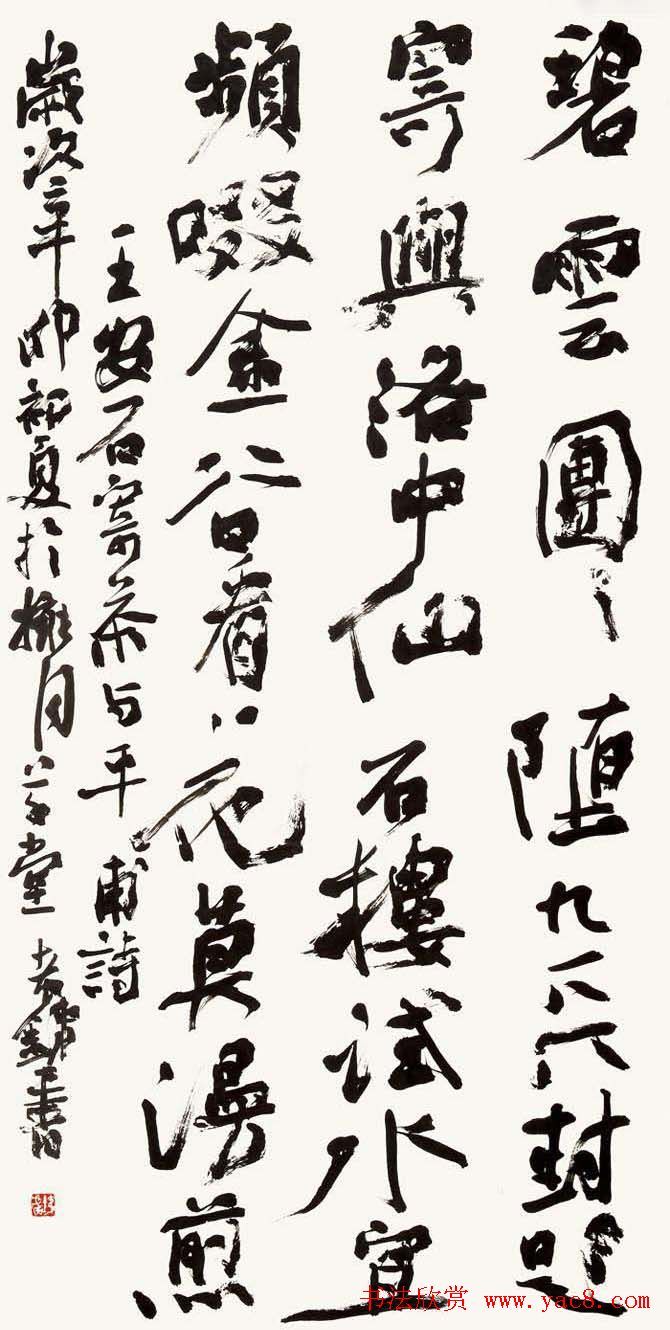 碧雲團々堕九天封題
寄與洛中仙石樓試水宜
頻啜金谷看花莫漫煎
王安石寄茶与平甫詩
歲次辛卯初夏於擁月草堂 書
书法欣赏 www.yac8.com